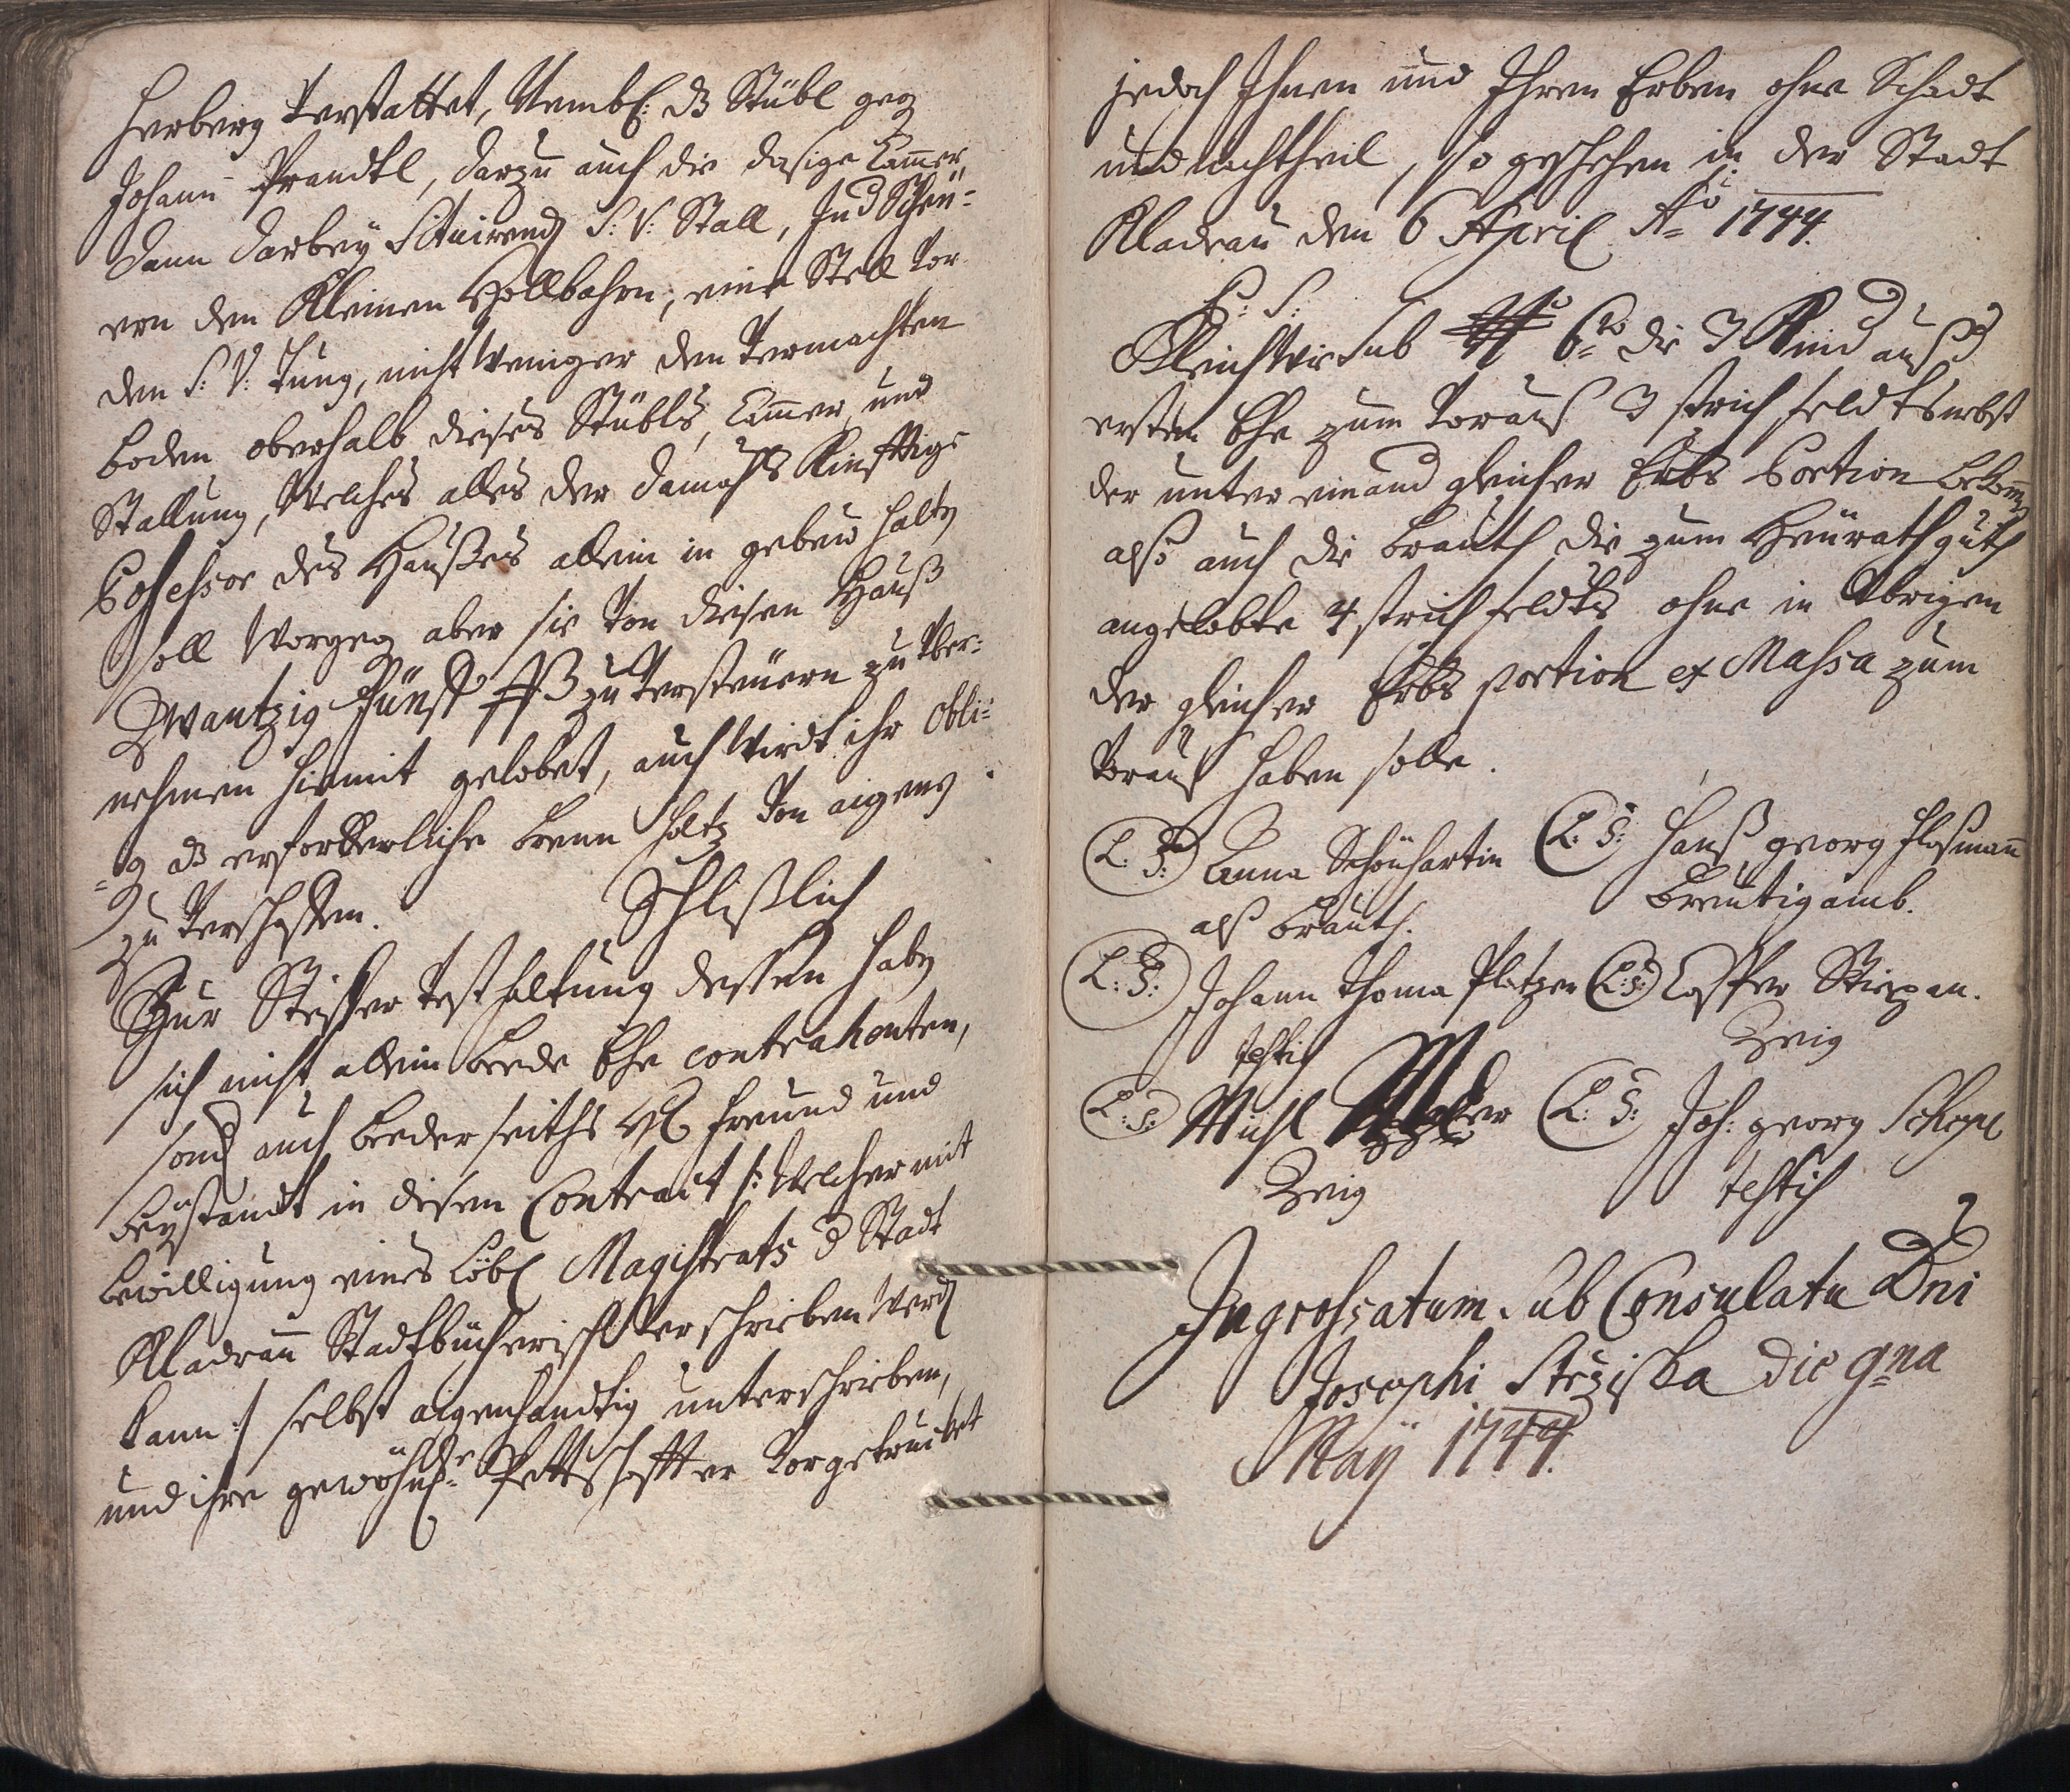 Herberg verstattet, Nembl: dz Stübl geg
Johann Prandtl, darzu auch die dasige Cammer
dann darbey Situirend S: V: Stall, Ind Scheü-
ern den Kleinen Hollbahrn, eine Stell vor
den S: V: Tung, nicht weniger den vermachten
boden oberhalb dieses Stübls, Cammer, und
Stallung, Welches alles der damahls Künfftige
Possessor des Haußes allein in gebeud halten
soll Worgeg aber sie von diesen Hauß
Zwantzig Fünff ß zu versteuern zu über-
nehmen hiemit gelobet, auch Wirdt ihr obli-
g dz erforderliche brenn holtz von aigens
zu verschaffen. Schlißlich
Zur Steiffer vesthaltung dessen haben
sich nicht allein beede Ehe contrahenten,
sond auch beeder seiths HE Freund und
beystandt in disem Contract /: Welcher mit
bewilligung eines Löbl Magistrats d Stadt
Kladrau Stadtbücherisch verschrieben Werd
kann :/ selbst aigenhandtig unterschrieben,
und ihre gewöhnl: Pettschaffter vorgetrucket
jedoch Ihnen und Ihren Erben ohne Schadt
und nachtheil, so geschehen in der Stadt
Kladrau den 6 April Ao 1744.
P: S:
Gleich Wie sub 6to die 3 Kind auß
ersten Ehe zum voraus 3 strich feldts nebst
der unter einand gleicher Erbs Portion bekomm
also auch die brauth die zum Heürath guth
angelobte 4 strich feldts ohne in übrigen
der gleicher Erbs portion ex Massa zum
voraus haben solle.
L: S: Anna Schönhartin L: S: Hanß georg Floßmann
alß brauth. Breutigamb.
L: S: Johann Thoma Platzer L: S: Casper Stiepan.
testis Zeig
L: S: Michl L: S: Joh: georg
Zeig testis
Ingrossatum sub Consulatu Dni
Josephi die 9na
Maÿ 1744.